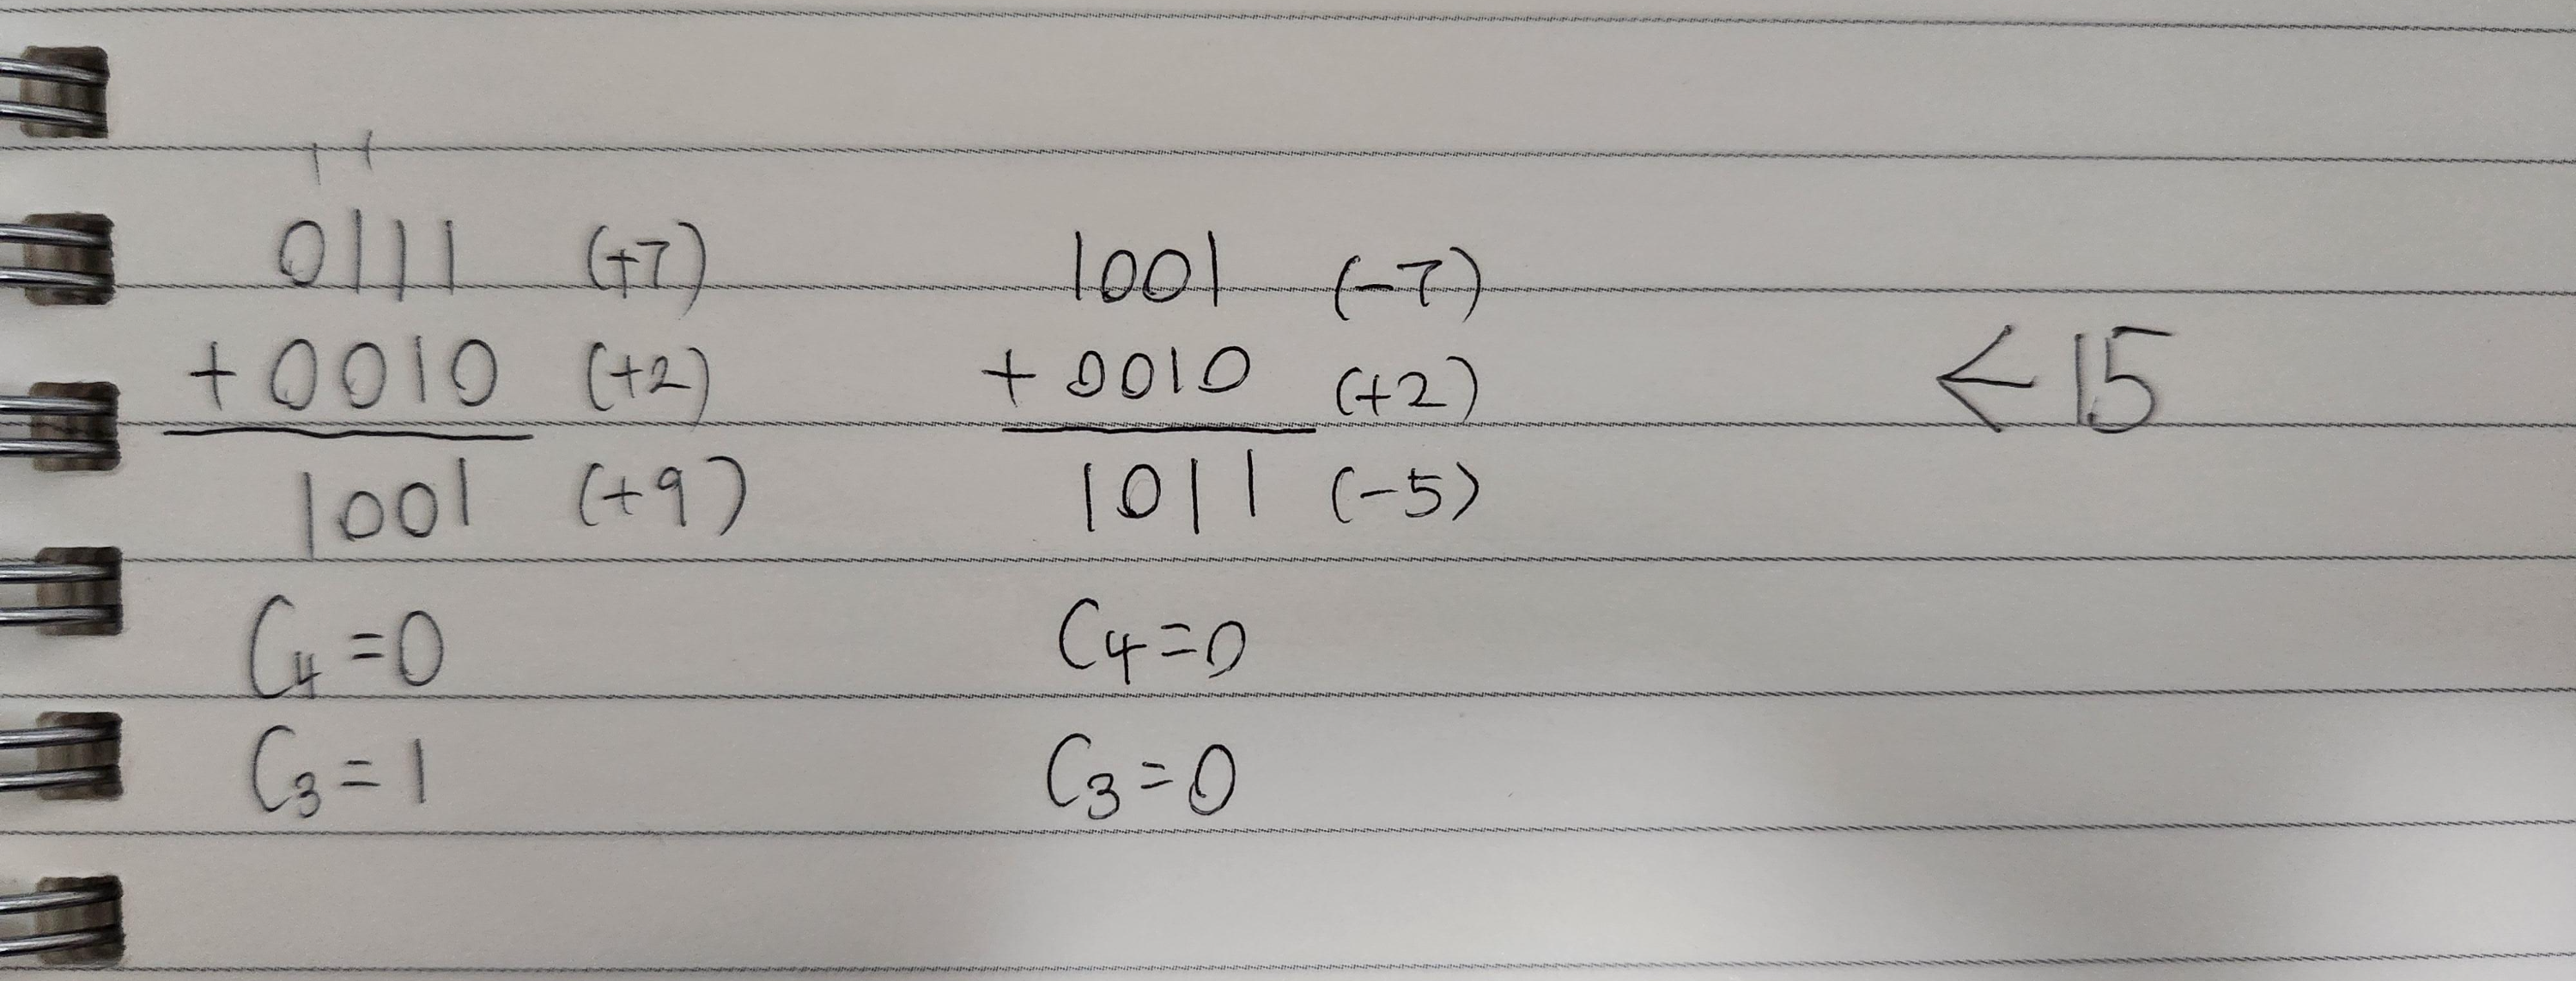 1 1
0111 (+7)
+0010 (+2)
1001 (+9)
C4=0
C3=1
1001 (-7)
+0010 (+2)
1011 (-5)
C4=0
C3=0
←15